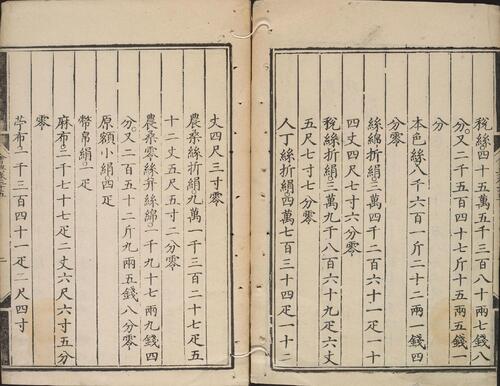 稅絲四十五萬五千三百八十兩五錢八
分。又二千五百四十五斤一十五兩五錢一
分
本色絲八千六百一斤二十二兩一錢四
分零
絲綿折絹三萬四千二百六十一疋一十
四丈四尺七寸六分零
稅絲折絹三萬九千八百六十九疋六丈
五尺七寸七分零
人丁絲折絹四萬七百三十四疋一十二
丈四尺三寸零
農桑絲折絹九萬一千三百二十七疋五
十二丈五尺五寸二分零
農桑零絲并絲綿二千九十七兩九錢四
分。又二百五十二斤九兩五錢八分零
原額小絹四疋
幣帛絹二疋
麻布二千七十七疋二丈六尺六寸五分
零
苧布二千三百四十一疋二尺四寸